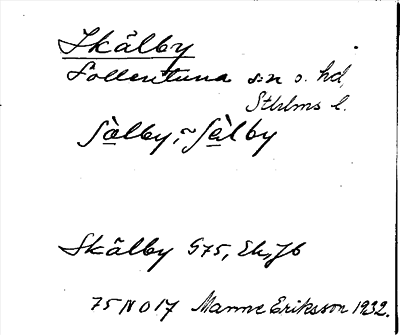 Skälby
Sollentuna sn o. hd,
Sthlms l.
Sä̀lby, ~ Sä̀lby
Skälby G75, Ek, Jb
75 N O 17 Manne Eriksson 1932.